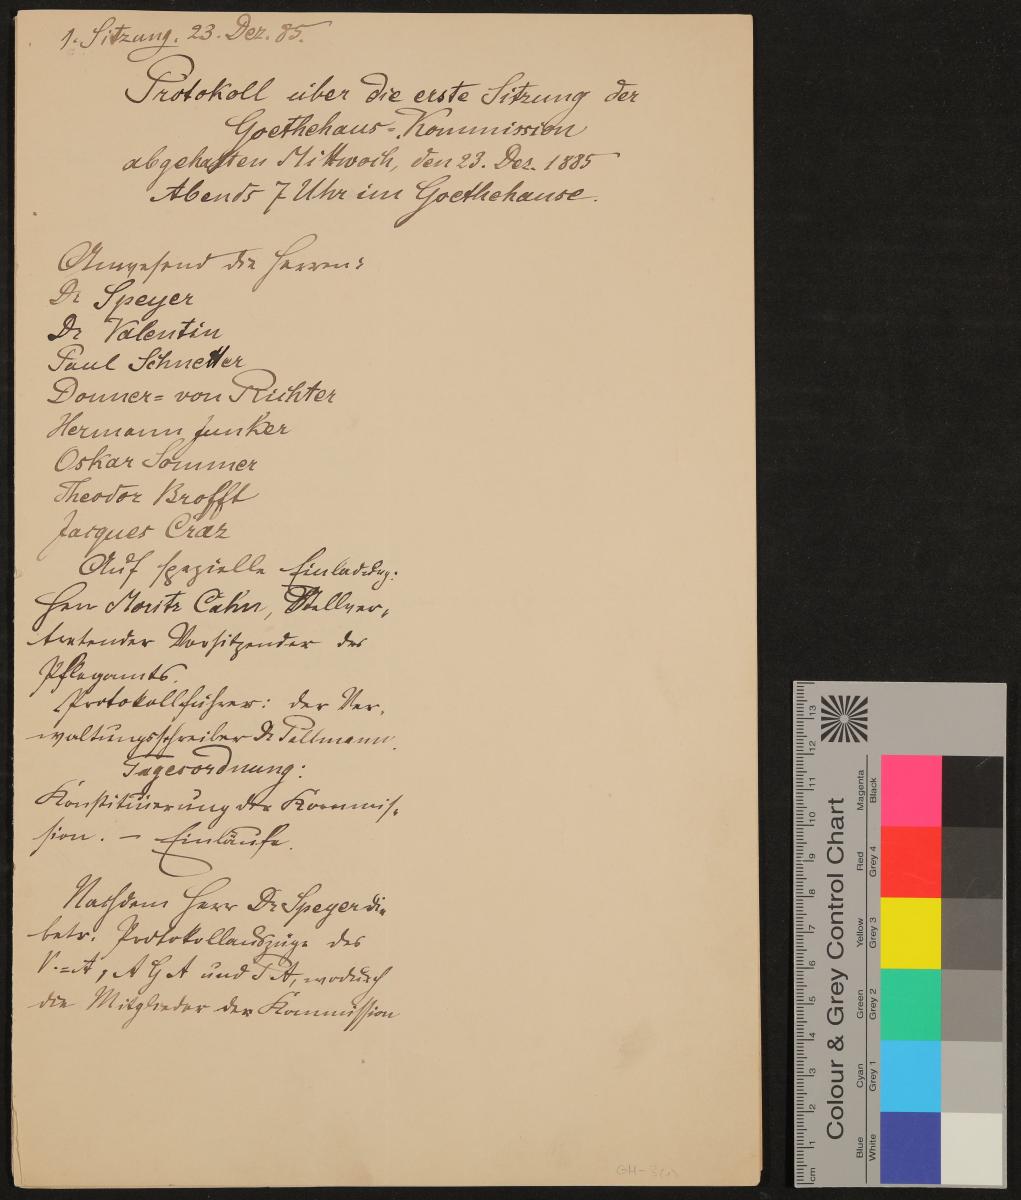 1. Sitzung. 23. Dez. 85.
Protokoll über die erste Sitzung der
Goethehaus=Kommission
abgehalten Mittwoch, den 23. Dez. 1885
Abends 7 Uhr im Goethehause.
Anwesend die Herren:
Dr Speyer
Dr Valentin
Paul Schnetter
Donner= von Richter
Hermann Junker
Oskar Sommer
Theodor Brofft
Jacques Craz
Auf spezielle Einladung:
Herr Moritz Cahn, Stellver,
tretender Vorsitzender des
Pflegamts.
Protokollführer: der Ver,
waltungsschreiber Dr Pallmann.
Tagesordnung:
Konstituierung der Kommis,
sion. – Einläufe.
Nachdem Herr Dr Speyer die
betr. Protokollauszüge des
V.=A, A G A und F A, wodurch
die Mitglieder der Kommission
GH-3(1)
Colour & Grey Control Chart
Blue Cyan Green Yellow Red Magenta
White Grey 1 Grey 2 Grey 3 Grey 4 Black
cm 1 2 3 4 5 6 7 8 9 10 11 12 13